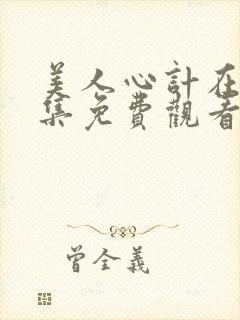 美人心計在
集免費觀看
曾全義